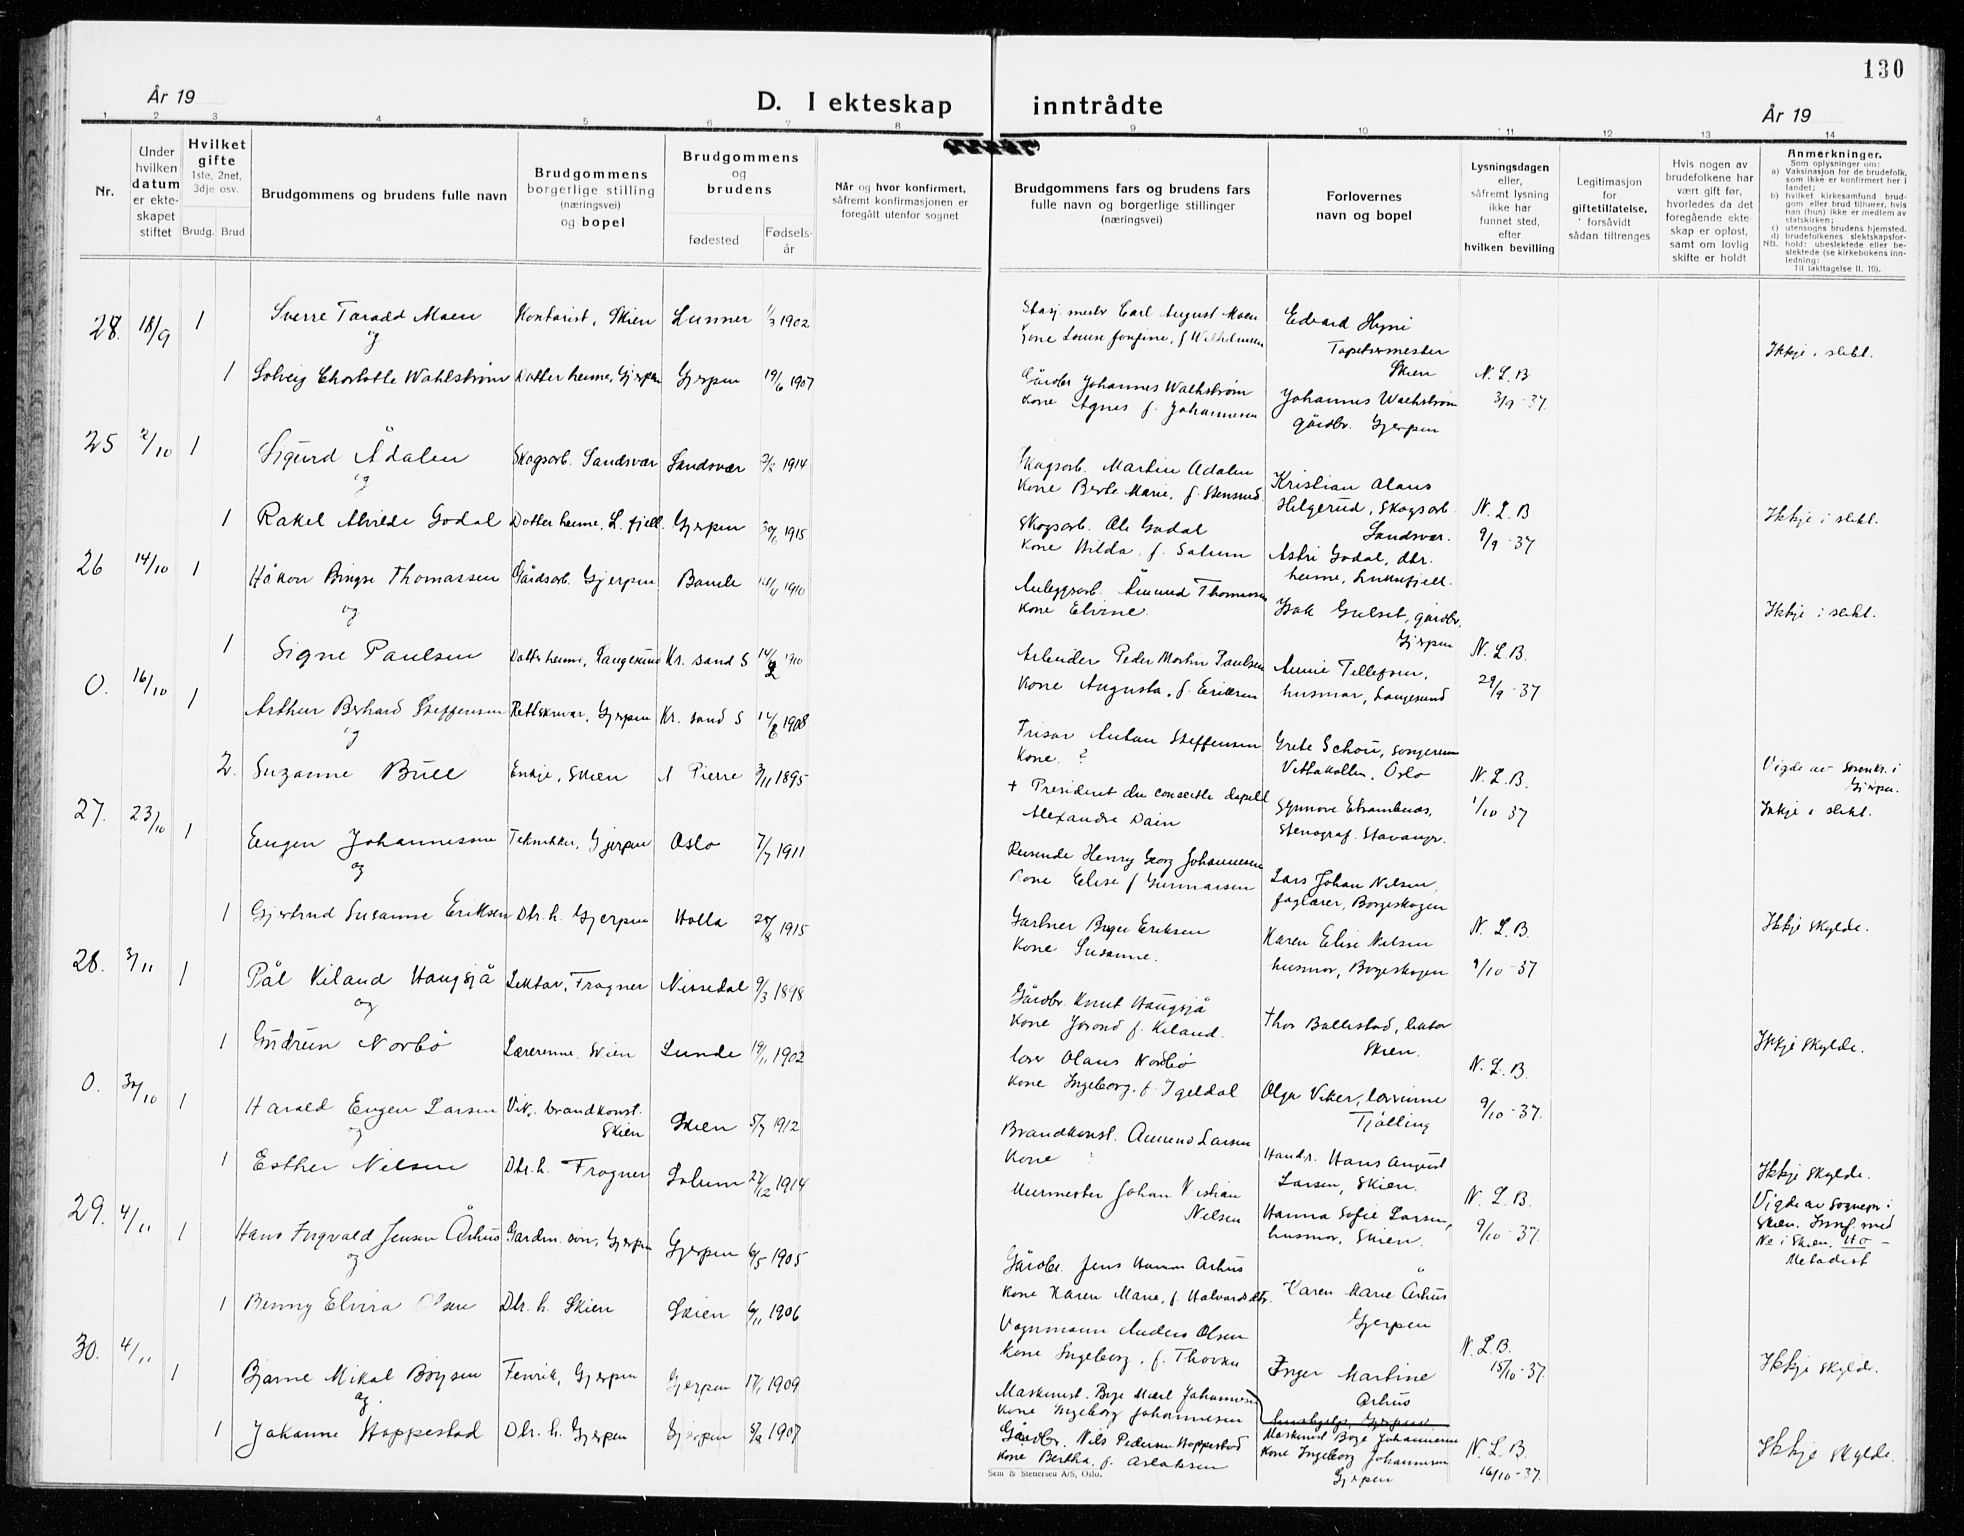 130
År 19
D. I ekteskap inntrådte
År 19
1 2 3 4 5 6 7 8 9 10 11 12 13 14
Nr.
Under hvilken datum er ekte-skapet stiftet
Hvilket gifte
1ste, 2net, 3dje osv.
Brudg. Brud
Brudgommens og brudens fulle navn
Brudgommens borgerlige stilling (næringsvei) og bopel
Brudgommens og brudens
fødested
Fødsels-år
Når og hvor konfirmert, såfremt konfirmasjonen er foregått utenfor sognet
Brudgommens fars og brudens fars fulle navn og borgerlige stillinger (næringsvei)
Forlovernes navn og bopel
Lysningsdagen eller, såfremt lysning ikke har funnet sted, efter hvilken bevilling
Legitimasjon for giftetillatelse, forsåvidt sådan tiltrenges
Hvis nogen av brudefolkene har vært gift før, hvorledes da det foregående ekte skap er opløst, samt om lovlig skifte er holdt
Anmerkninger.
Som oplysninger om:
a) Vaksinasjon for de brudefolk, som ikke er konfirmert her i landet;
b) hvilket kirkesamfund brudgom eller brud tilhører, hvis han (hun) ikke er medlem av statskirken;
c) utensogns brudens hjemsted.
d) brudefolkenes slektskapsfor-
NB. hold: ubeslektede eller beslektede (se kirkebokens innledning:
Til iakttagelse II, 10).
28. 18/9 1 Sverre Taradd Moen Kontorist, Skien Lunner 1/3 1902
og
1 Solveig Charlotte Wahlstrøm Dotter heime, Gjerpen Gjerpen 19/6 1907
Stasj. mestr Carl August Moen
Kone Louise Josefine, f Wilhelmsen
Gårdbr Johannes Wahlstrøm
Kone Agnes f. Johannesen
Edvard Hyni
Tapetsermester
Skien
Johannes Wahlstrøm
gårdbr. Gjerpen
N. L. B
3/9-37.
Ikkje i slekt.
25 2/10 1 Sigurd Ådalen Skogsarb. Sandsvær Sandsvær 1914
og
1 Rakel Alvilde Godal Dotter heime, L. fjell. Gjerpen 30/6 1915
Skogsarb. Martin Adalen
Kone Berte Marie, f. Stensrud.
Skogsarb. Ole Godal
Kone Hilda, f. Solum
Kristian Olaus
Helgerud, Skogsarb.
Sandsvær.
Astri Godal, dtr.
heime, Luksefjell.
N. L. B
9/9-37
Ikkje i slekt.
26 14/10 1 Håkon Bingse Thomassen Gårdsarb. Gjerpen Bamle 1910
og
1 Signe Paulsen Dotter heime, Langesund Kr. sand S 14/2 1910
Anleggsarb. Åmund Thomassen
Kone Elvine.
Arbeider Peder Martin Paulsen
Kone Augusta, f. Eriksen
Isak Gulset, gårdbr.
Gjerpen
Annie Tellefsen,
husmor, Langesund
N. L. B.
29/9-37
Ikkje i slekt.
0. 16/10 1 Arthur Berhard Steffensen Rettskrivar, Gjerpen Kr. sand S 14/6 1908
og
2. Suzanne Bull Enkje, Skien A Pierre 3/11 1895
Frisør Anton Steffensen
Kone. ?
+ President du conseille
Alexandre Dain
Grete Schou,
Vettakollen, Oslo
Synnove
Stenograf. Stavanger.
N. L. B.
1/10 37
Vigde av Sorenskr. i
Gjerpen.
Ikkje i slekt.
27. 23/10 1 Eugen Johannesen Tekniker, Gjerpen Oslo 7/7 1911
og
1 Gjertrud Susanne Eriksen Dtr. h. Gjerpen Holla 28/8 1915
Reisende Henry Georg Johannesen
Kone Elise f Gunnarsen
Gartner Birger Eriksen
Kone Susanne.
Lars Johan Nilsen,
faglærer, Borgeskogen
Karen Elise Nilsen
husmor, Borgeskogen
N. L. B.
9/10-37
Ikkje skylde.
28. 3/11 1 Pål Kiland Haugsjå Lektor, Frogner Nissedal 9/3 1898
og
1 Gudrun Norbø Lærerinne. Skien Lunde 19/11 1902
Gårdbr. Knut Haugsjå
Kone Jorond f. Kiland.
lærer Olaus Nordbø
Kone Ingeborg, f. Igeldal
Thor Ballestad, lektor
Skien.
Olga Viker, lærinne
Tjølling
N. L. B.
9/10-37.
Ikkje skylde.
0. 30/10 1 Harald Eugen Larsen Vik. brandkonst.
Skien Skien 5/7 1912
og
1 Esther Nilsen Dtr. h. Frogner Solum 27/12 1914
Brandkonst. Amund Larsen
Kone ?
Murmester Johan Kristian
Nilsen
Handr. Hans August
Larsen, Skien.
Hanna Sofie Larsen,
husmor, Skien.
N. L. B.
9/10-37.
Ikkje skylde.
Vigde av Sognepr i
Skien. Innf. med
No i Skien. Ho -
Metodist
29. 4/11 1 Hans Ingvald Jensen Århus Gardm. søn, Gjerpen Gjerpen 6/5 1905
og
1 Benny Elvira Olsen Dtr. h. Skien Skien 6/11 1906
Gårdbr. Jens Hansen Århus
Kone Karen Marie, f. Halvordsdtr.
Vognmann Anders Olsen
Kone Ingeborg, f. Thorsen
Karen Marie Århus
Gjerpen
Inger Martine
Århus
hushjelp, Gjerpen
N. L. B.
15/10-37.
Ikkje skylde.
30. 4/11 1 Bjarne Mikal Boysen Fenrik, Gjerpen Gjerpen 1909
og.
1 Johanne Hoppestad Dtr. h. Gjerpen Gjerpen 1907
Maskinist. Boye Johannesen
Kone Ingeborg Johannesen
Gårdbr. Nils Pedersen Hoppestad
Kone Bertha, f. Aslaksen
Maskinist Boye Johannesen
Kone Ingeborg Johannesen
Gjerpen
N. L. B
16/10-37.
Ikkje skylde.
Sem & Stenersen A/S, Oslo.